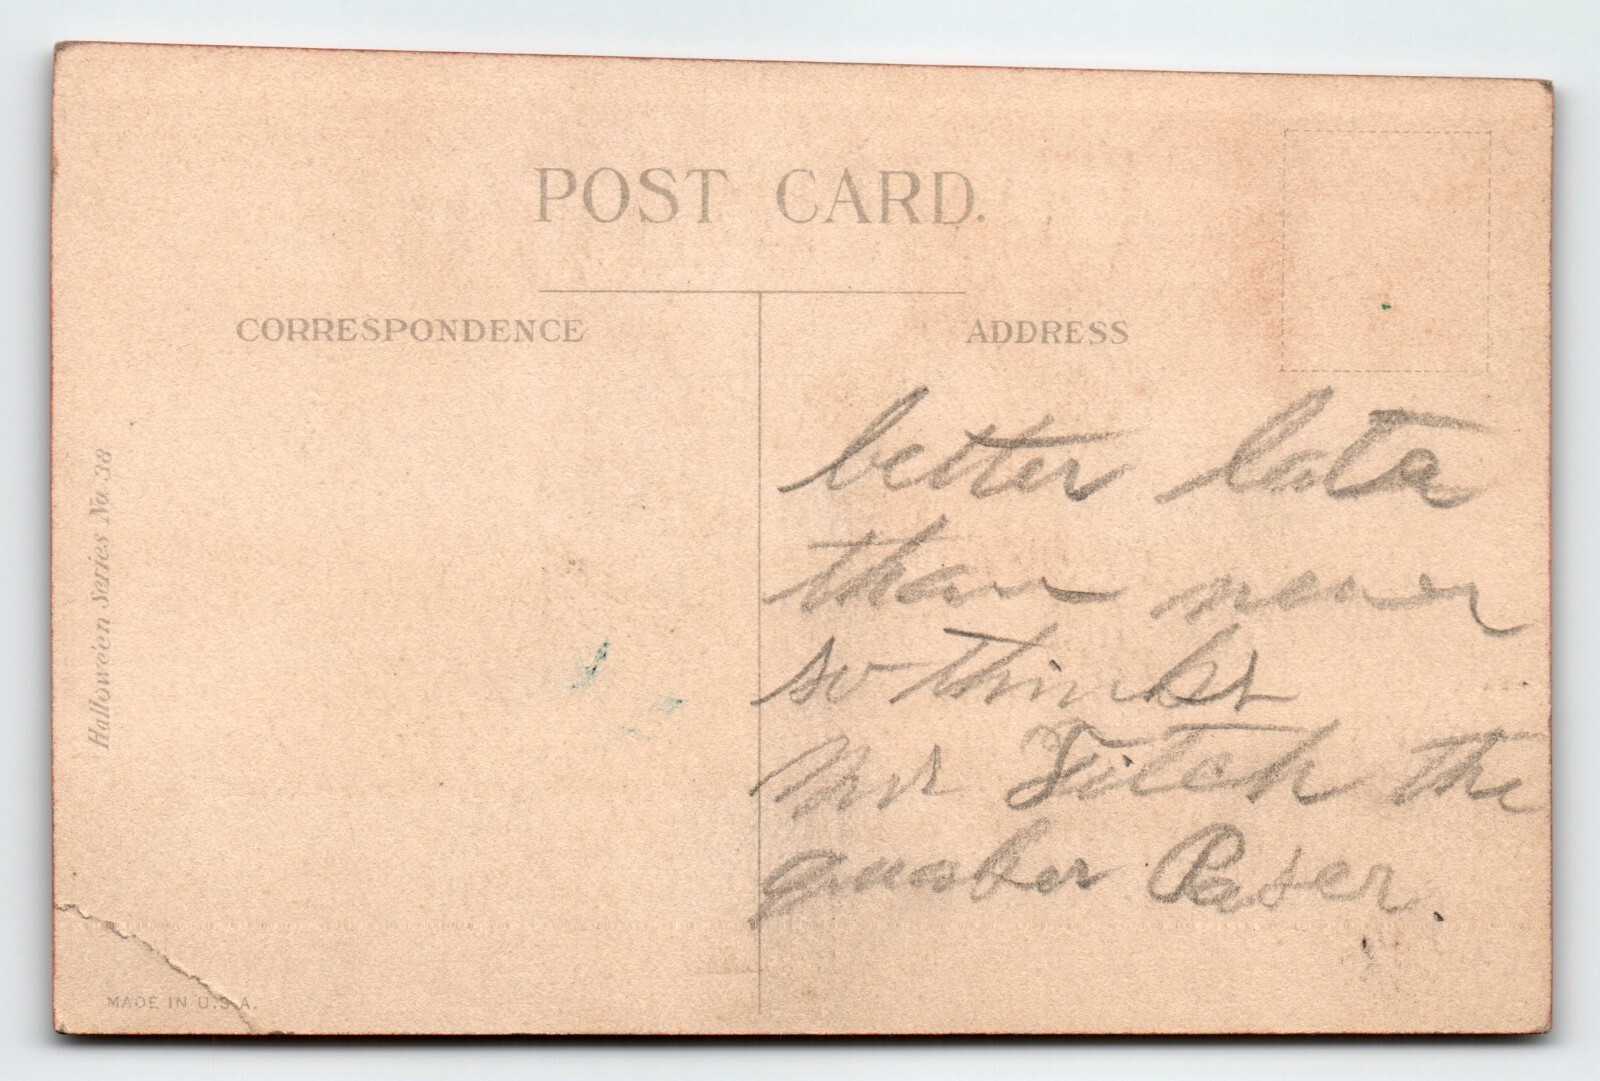 POST CARD.
CORRESPONDENCE
ADDRESS
Halloween Series No. 38
better late
than never
so thinks
Mr Fitch the
quaker
MADE IN U.S.A.